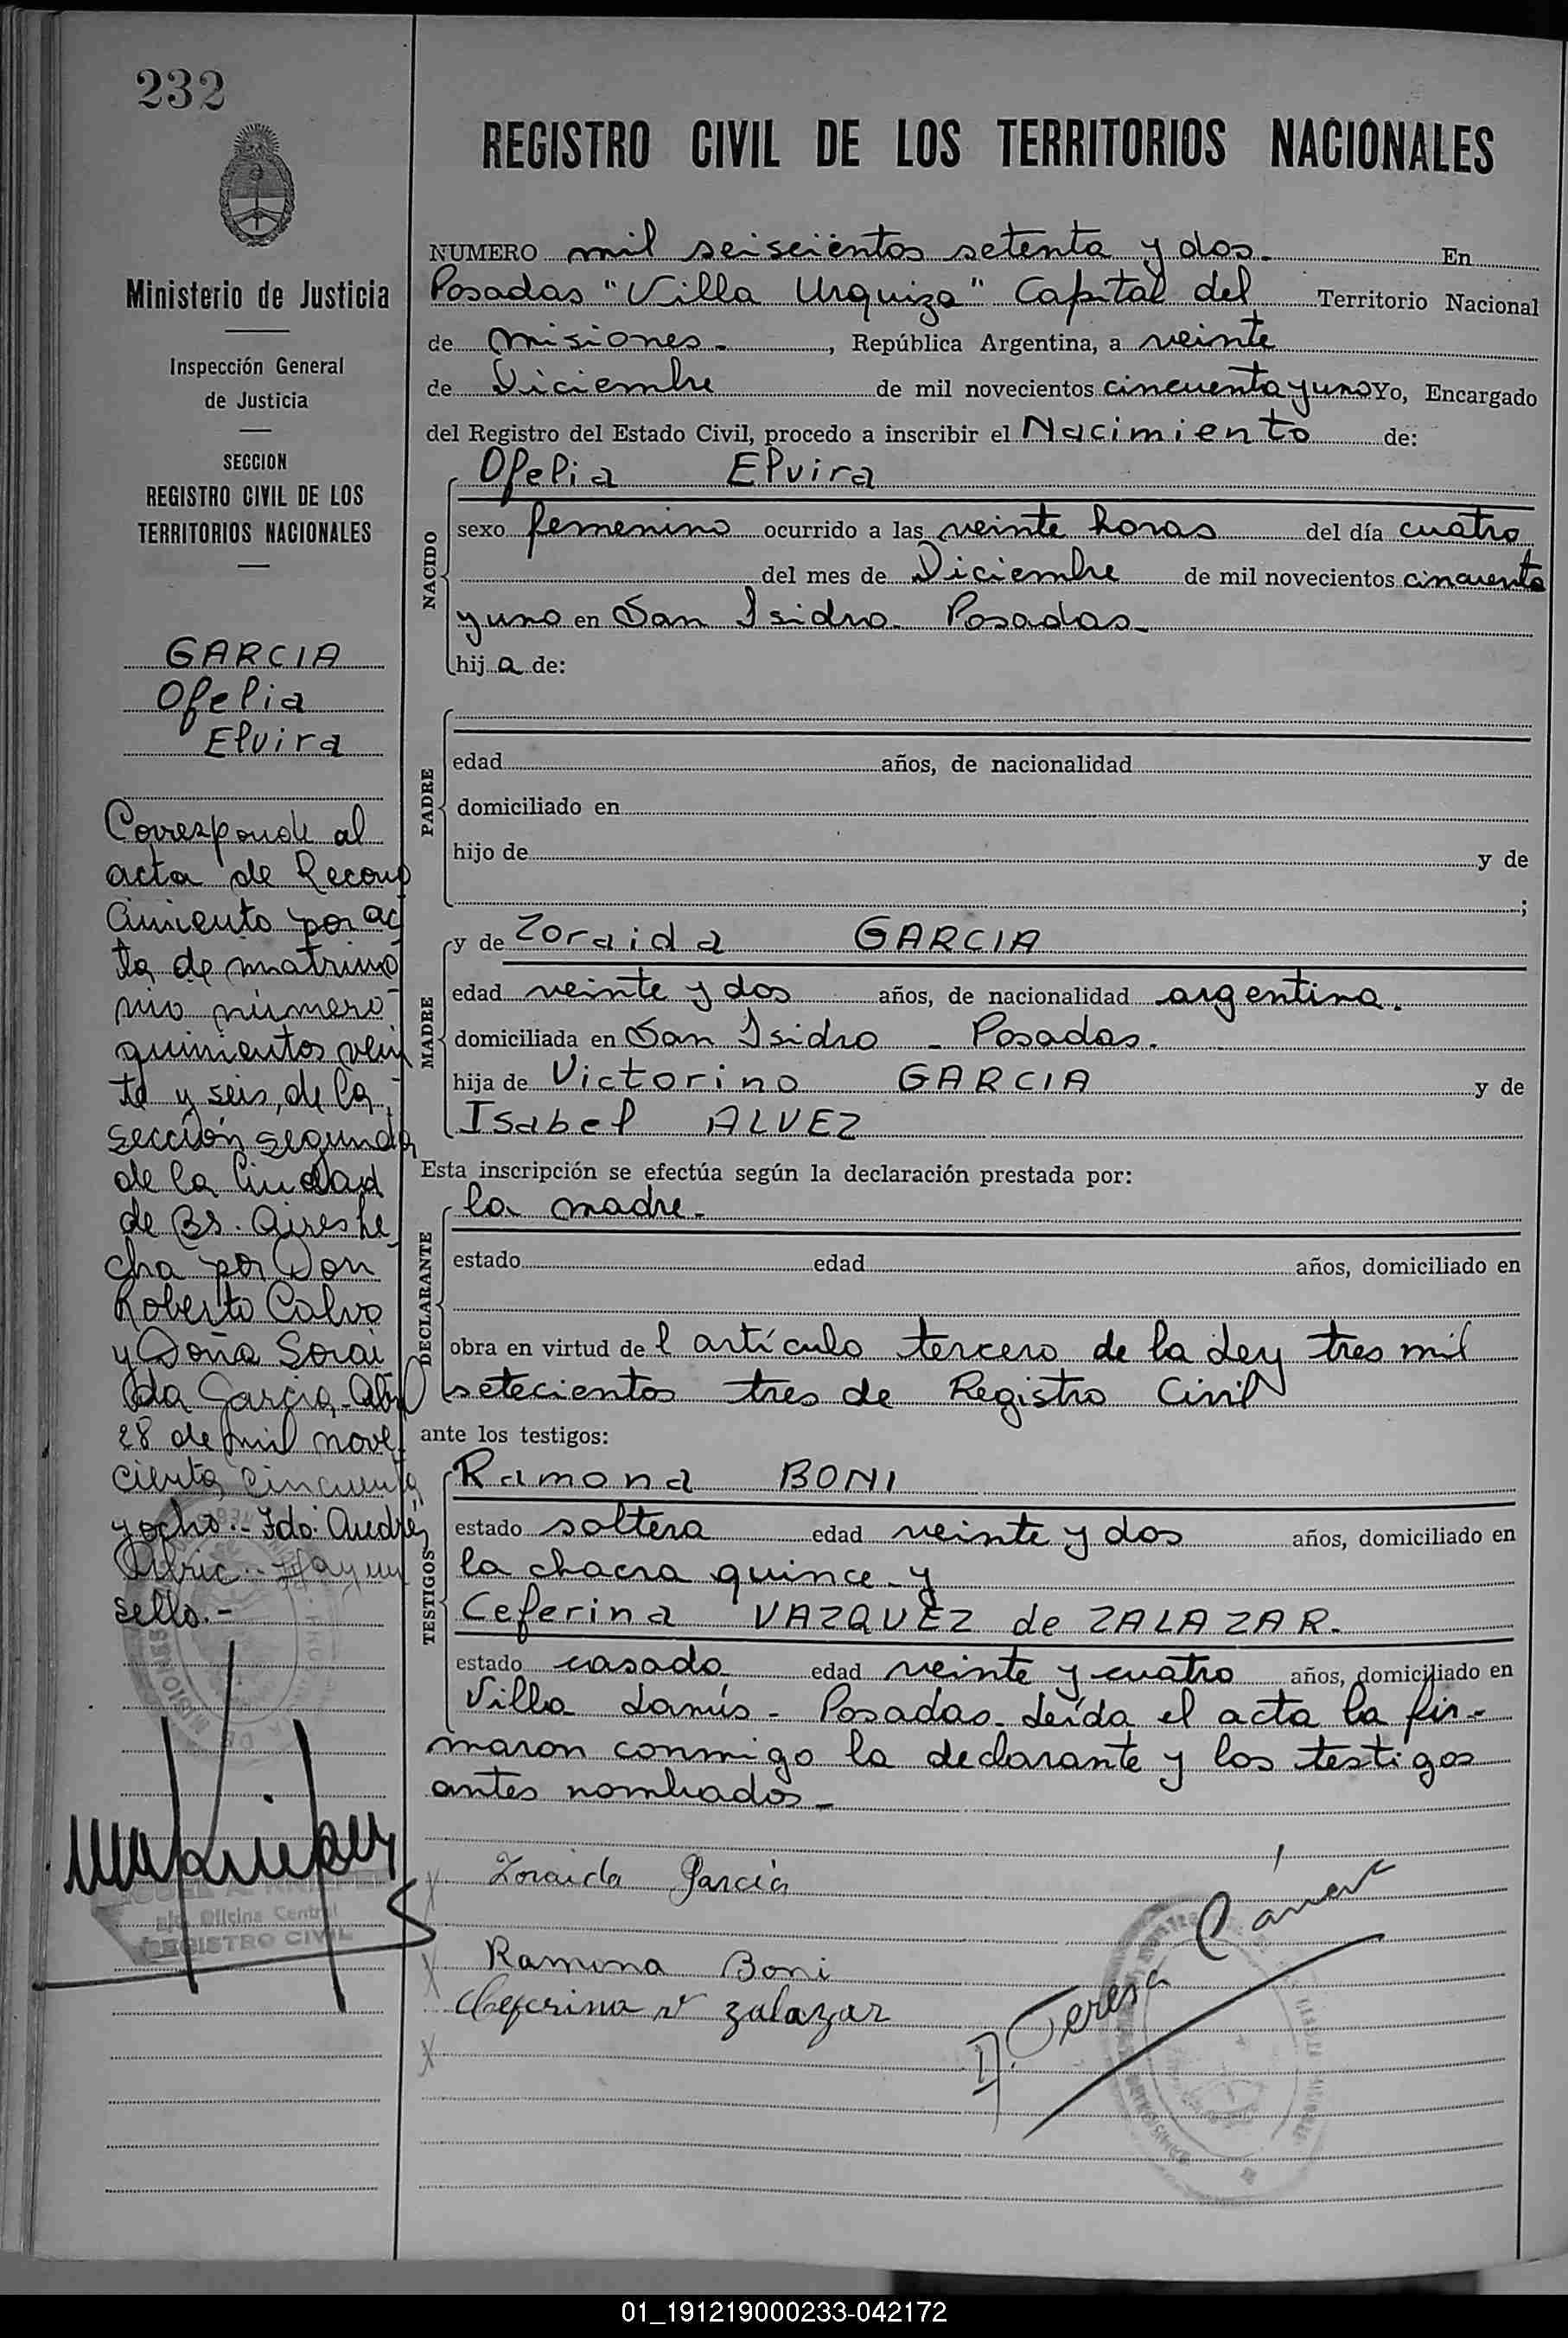 232
Ministerio de Justicia
Inspección General
de Justicia
SECCION
REGISTRO CIVIL DE LOS
TERRITORIOS NACIONALES
GARCIA
Ofelia
Elvira
Corresponde al
acta de Recono
cimiento por ac
ta de matrimo
nio número
quinientos vein
te y seis, de la
sección segunda
de la Ciudad
de Bs. Aires he
cha por Don
Roberto Calvo
y Doña Sorai
da Garcia. Abril
28 de mil nove
cientos cincuenta
y ocho.- Fdo: Andrés
Hay un
sello.-
Oficina Central
REGISTRO CIVIL
REGISTRO CIVIL DE LOS TERRITORIOS NACIONALES
NUMERO mil seiscientos setenta y dos. En
Posadas "Villa Urquiza" Capital del Territorio Nacional
de Misiones. , República Argentina, a veinte
de Diciembre de mil novecientos cincuenta y uno Yo, Encargado
del Registro del Estado Civil, procedo a inscribir el Nacimiento de:
Ofelia Elvira
NACIDO
sexo femenino ocurrido a las veinte horas del día cuatro
del mes de Diciembre de mil novecientos cincuenta
y uno en San Isidro. Posadas.
hij a de:
PADRE
edad años, de nacionalidad
domiciliado en
hijo de y de
;
MADRE
y de Zoraida GARCIA
edad veinte y dos años, de nacionalidad argentina.
domiciliada en San Isidro - Posadas.
hija de Victorino GARCIA y de
Isabel ALVEZ
Esta inscripción se efectúa según la declaración prestada por:
DECLARANTE
la madre.
estado edad años, domiciliado en
obra en virtud de l artículo tercero de la Ley tres mil
setecientos tres de Registro Civil
ante los testigos:
TESTIGOS
Ramona BONI
estado soltera edad veinte y dos años, domiciliado en
la chacra quince. y
Ceferina VAZQUEZ de ZALAZAR.
estado casada edad veinte y cuatro años, domiciliado en
Villa Lanús - Posadas. Leída el acta la fir-
maron conmigo la declarante y los testigos
antes nombrados.
Zoraida Garcia
Ramona Boni
Ceferina V Zalazar
Teresa
01_191219000233-042172